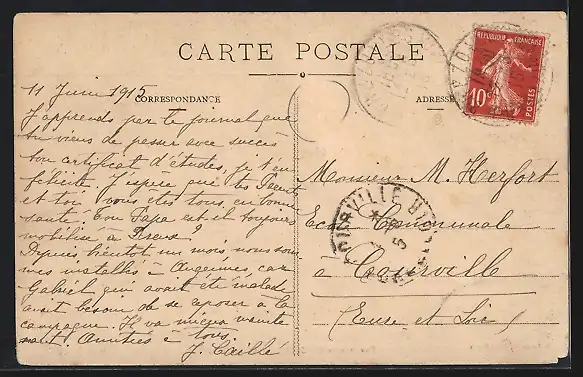 CARTE POSTALE
CORRESPONDANCE
ADRESSE
RÉPUBLIQUE FRANÇAISE
10c
POSTES
11 Juin 1915
J'apprends par le journal que
tu viens de passer avec succès
ton certificat d'études, je t'en
félicite. J'espère que tes Parents
et toi vous êtes tous en bonne
santé. Ton Papa est-il toujours
mobilisé à Dreux?
Depuis bientôt un mois nous som
mes installés à car
Gabriel qui avait été malade
avait besoin de se reposer à la
campagne. Il va mieux mainte
nant. Amitiés à tous,
J. Caillé
Monsieur M. Herfort
Ecole Communale
à Courville
(Eure et Loir)